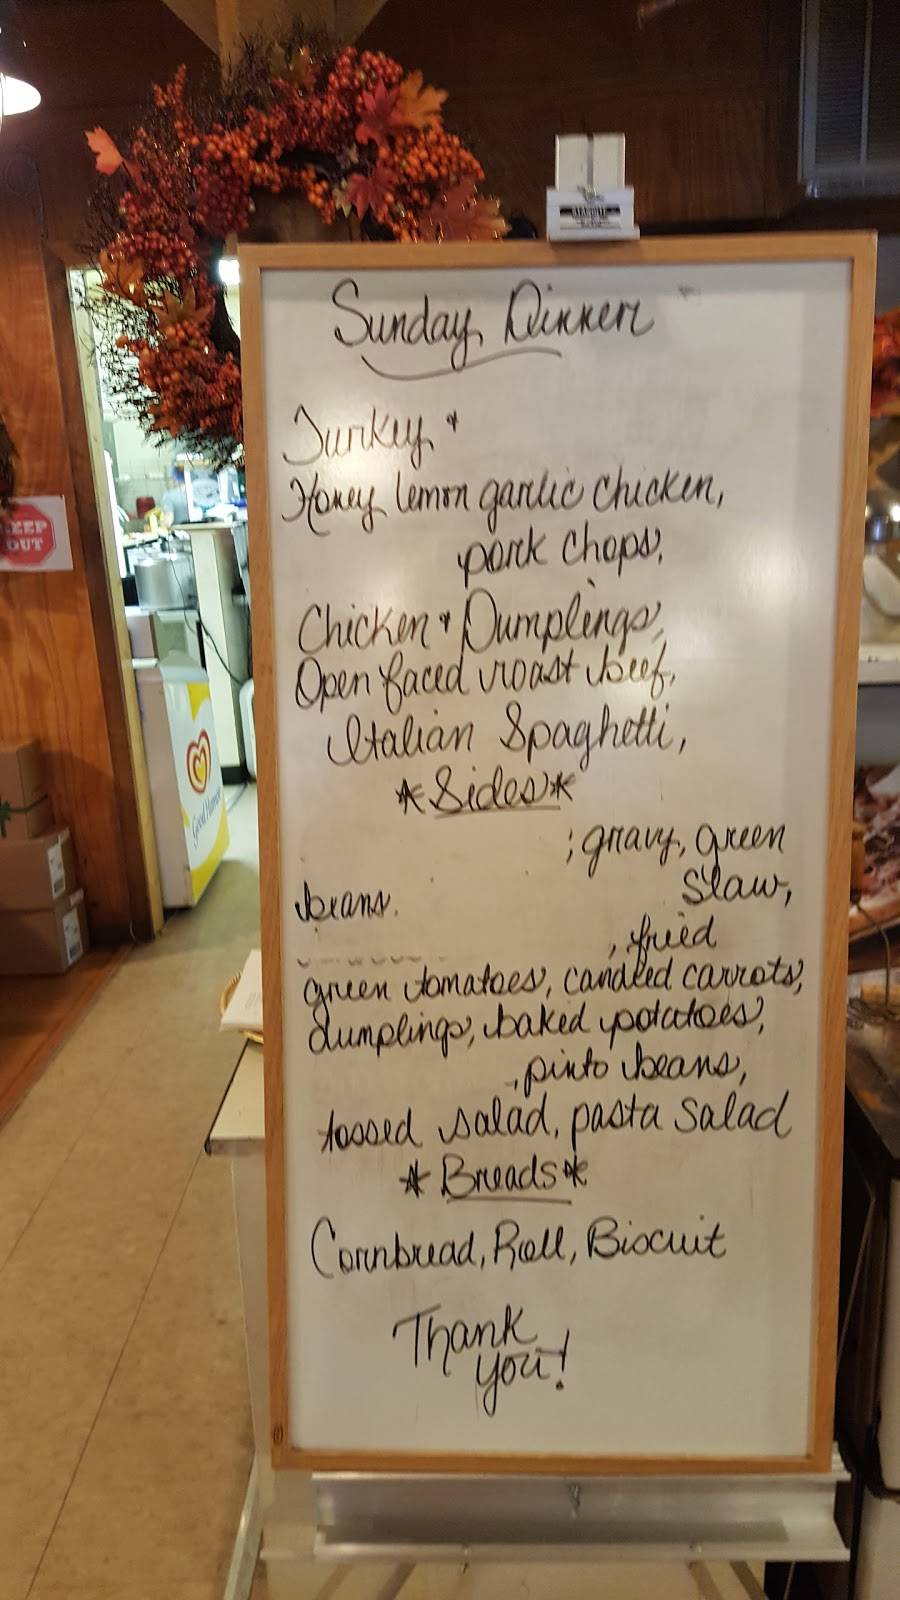 Sunday Dinner
Turkey &
Honey lemon garlic chicken,
pork chops,
Chicken & Dumplings,
Open faced roast beef,
Italian Spaghetti,
*Sides*
; gravy, green
beans. slaw,
, fried
green tomatoes, candied carrots,
dumplings, baked potatoes,
, pinto beans,
tossed salad, pasta salad
*Breads*
Cornbread, Roll, Biscuit
Thank
you!
KEEP
OUT
Good Humor